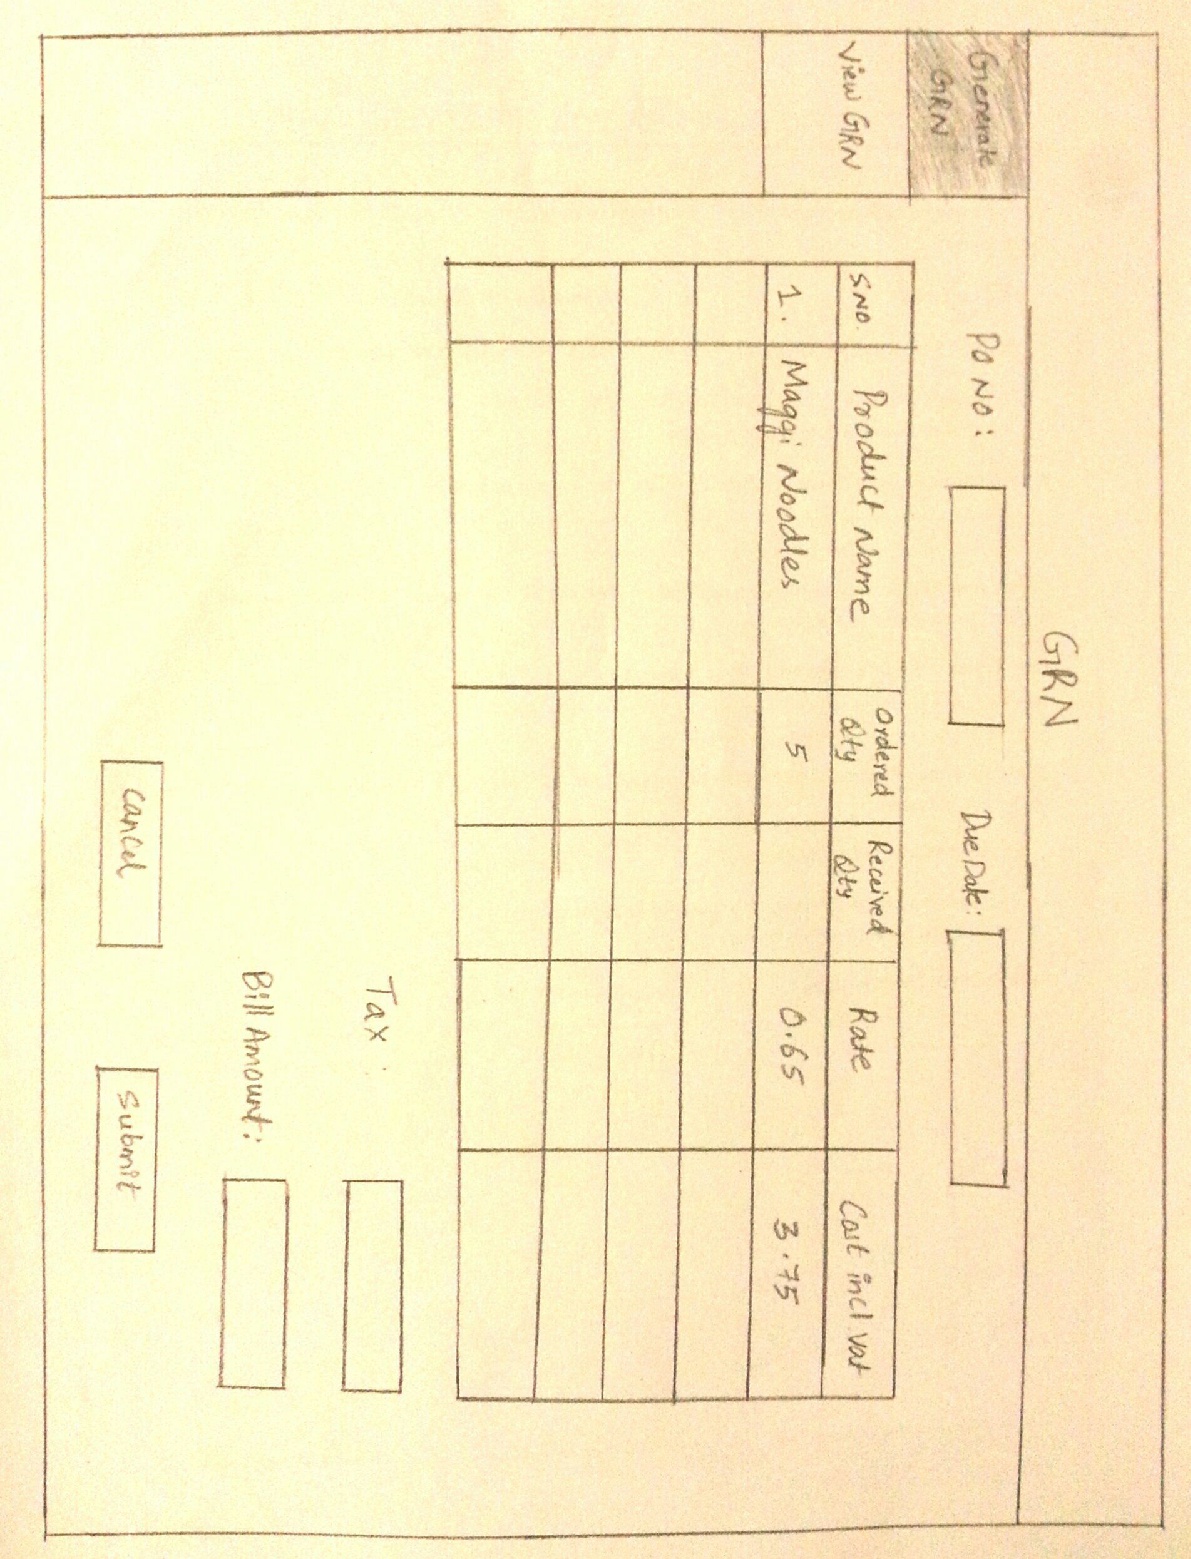 GRN
Generate
GRN
View GRN
PO NO :
Due Date :
SNO.
Product Name
Ordered
Qty
Received
Qty
Rate
Cost incl vat
1.
Maggi Noodles
5
0.65
3.75
Tax :
Bill Amount :
Cancel
Submit